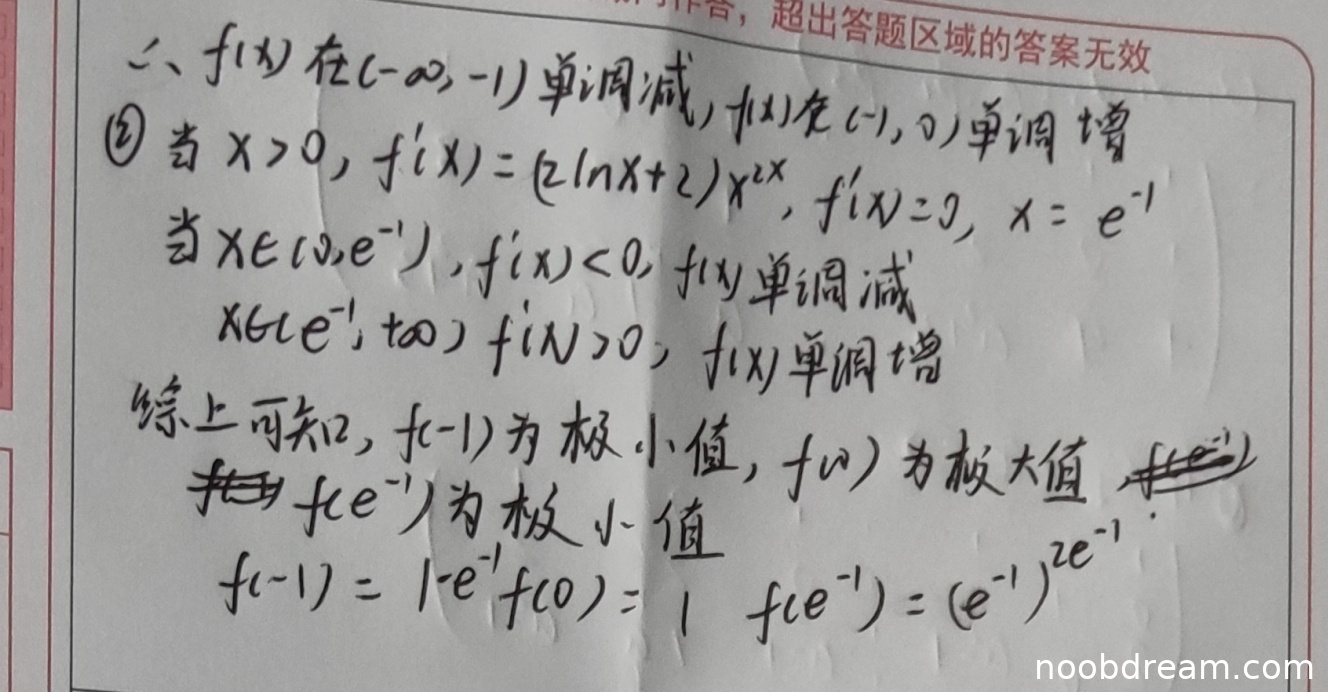 内作答，超出答题区域的答案无效
∴、f(x)在(-∞,-1)单调减,f(x)在(-1,0)单调增
② 当x>0, f'(x)=(2lnx+2)x^{2x}, f'(x)=0, x=e^{-1}
当x∈(0,e^{-1}), f'(x)<0, f(x)单调减
x∈(e^{-1},+∞) f'(x)>0, f(x)单调增
综上可知, f(-1)为极小值, f(0)为极大值
f(e^{-1})为极小值.
f(-1)=1-e^{-1} f(0)=1 f(e^{-1})=(e^{-1})^{2e^{-1}}
noobdream.com